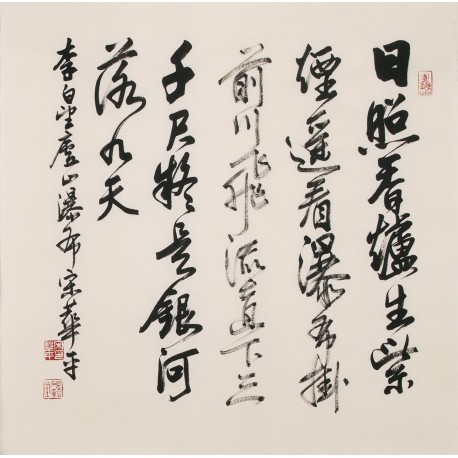 日照香爐生紫
煙遥看瀑布掛
前川飛流直下三
千尺疑是銀河
落九天
李白望廬山瀑布宋華平